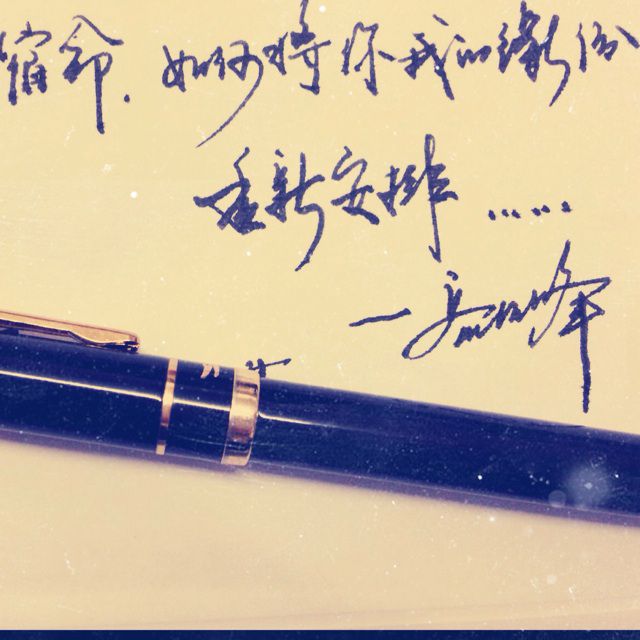 宿命.如何将你我的缘份
重新安排……
—高